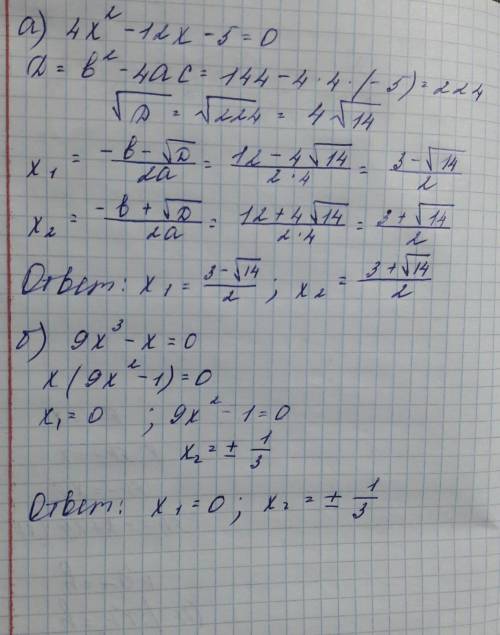 а) 4x² - 12x - 5 = 0
D = b² - 4ac = 144 - 4·4·(-5) = 224
√D = √224 = 4√14
x₁ = (-b - √D)/2a = (12 - 4√14)/2·4 = (3 - √14)/2
x₂ = (-b + √D)/2a = (12 + 4√14)/2·4 = (3 + √14)/2
Ответ: x₁ = (3 - √14)/2 ; x₂ = (3 + √14)/2
б) 9x³ - x = 0
x(9x² - 1) = 0
x₁ = 0 ; 9x² - 1 = 0
x₂ = ± 1/3
Ответ: x₁ = 0 ; x₂ = ± 1/3